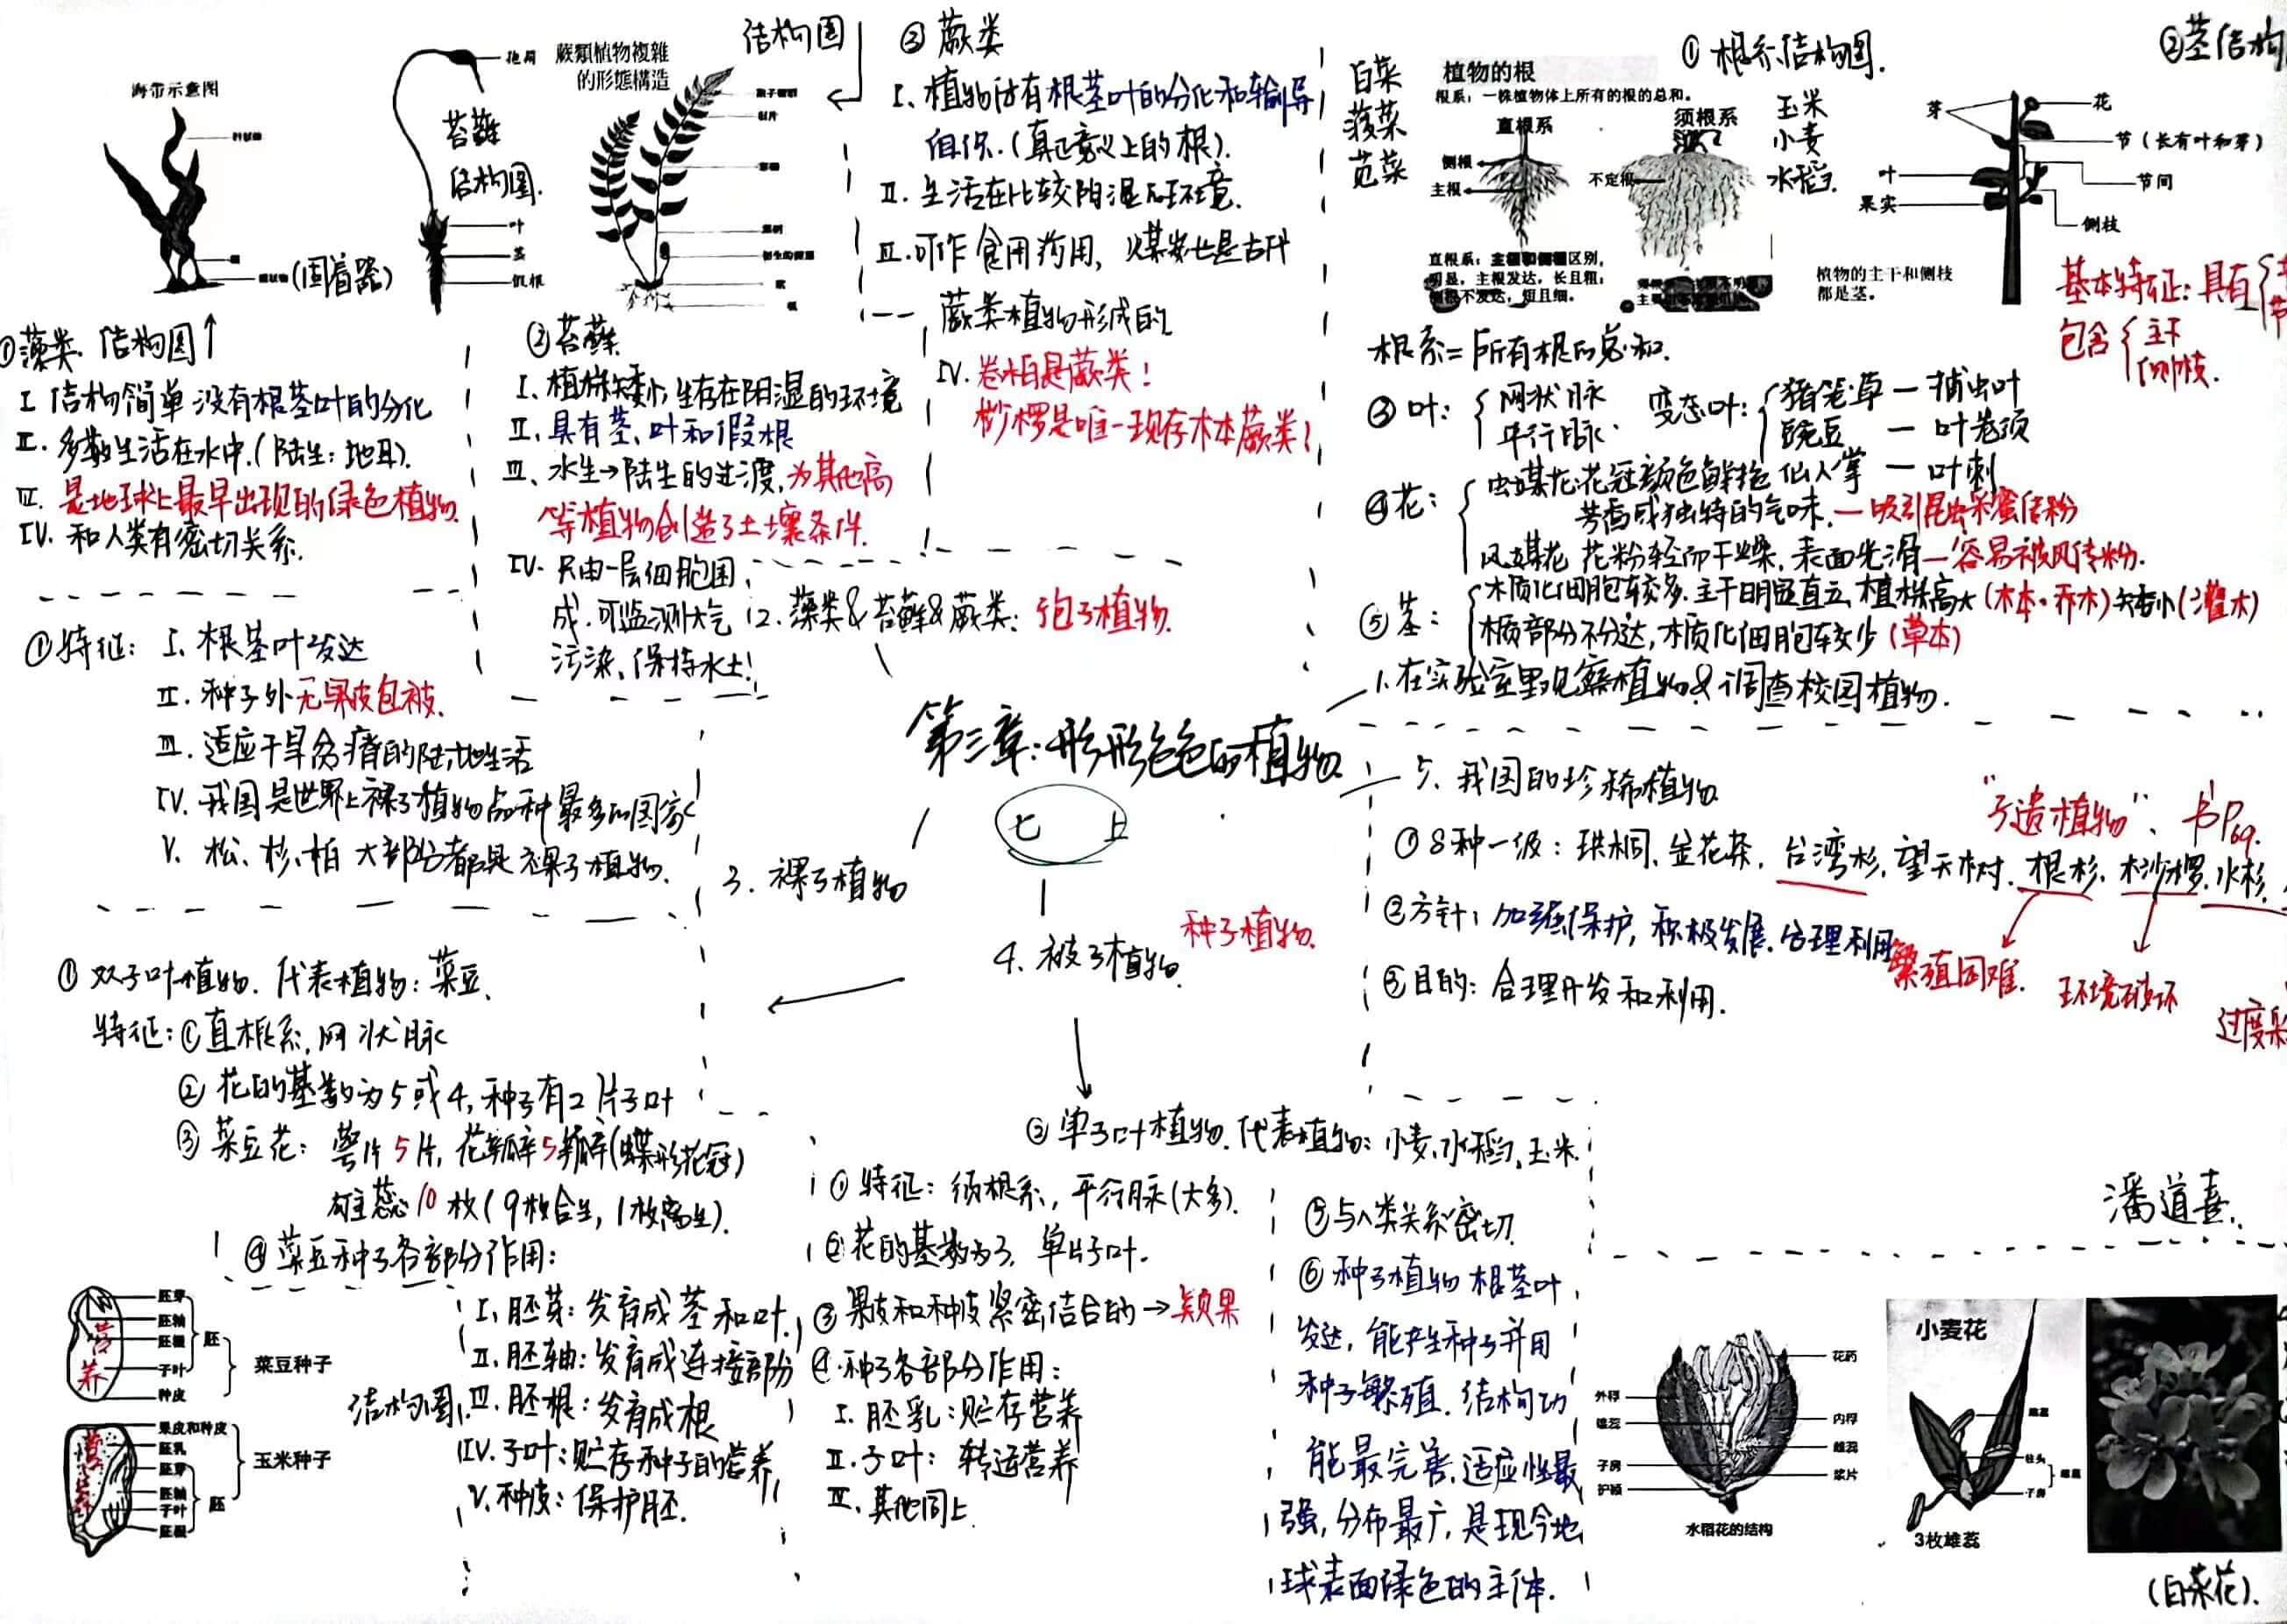 海带示意图
(固着器)
①藻类.结构图↑
I 结构简单 没有根茎叶的分化
II. 多数生活在水中.(陆生:地耳).
III. 是地球上最早出现的绿色植物.
IV. 和人类有密切关系.
苔藓
结构图.
叶
茎
假根
②苔藓
I. 植株矮小,生存在阴湿的环境
II. 具有茎、叶和假根
III. 水生→陆生的过渡,为其他高
等植物创造了土壤条件.
IV. 只由一层细胞围
成.可监测大气
污染、保持水土!
蕨類植物複雜
的形態構造
结构图
③ 蕨类
I. 植物体有根茎叶的分化和输导
组织.(真正意义上的根).
II. 生活在比较阴湿的环境.
III. 可作食用药用, 煤炭也是古代
蕨类植物形成的
IV. 卷柏是蕨类!
桫椤是唯一现存木本蕨类!
2. 藻类&苔藓&蕨类: 孢子植物.
白菜
菠菜
苋菜
植物的根
根系:一株植物体上所有的根的总和。
直根系
须根系
侧根
主根
不定根
直根系:主根和侧根区别,
明显,主根发达,长且粗;
侧根不发达,短且细。
① 根系结构图.
玉米
小麦
水稻.
②茎结构
芽
花
节(长有叶和芽)
叶
节间
果实
侧枝
植物的主干和侧枝
都是茎。
基本特征:具有
包含{主干
侧枝.
根系=所有根的总和.
③ 叶:{网状脉
平行脉.
变态叶:{猪笼草—捕虫叶
豌豆 — 叶卷须
仙人掌 — 叶刺
④花:{虫媒花:花冠颜色鲜艳
芳香或独特的气味.—吸引昆虫采蜜传粉
风媒花 花粉轻而干燥,表面光滑—容易被风传粉.
⑤茎:{木质化细胞较多.主干明显直立,植株高大(木本·乔木)矮小(灌木)
木质部分不分达,木质化细胞较少(草本)
1.在实验室里观察植物&调查校园植物.
①特征: I. 根茎叶发达
II. 种子外无果皮包被.
III. 适应干旱贫瘠的陆地生活
IV. 我国是世界上裸子植物品种最多的国家
V. 松、杉、柏 大部分都是裸子植物.
3. 裸子植物
第三章:形形色色的植物
七上
4. 被子植物.
种子植物.
5. 我国的珍稀植物
"孑遗植物". 书P69.
①8种一级:珙桐、金花茶,台湾杉,望天树.根杉.桫椤.水杉.
②方针:加强保护,积极发展.合理利用
③目的:合理开发和利用.
繁殖困难.
环境破坏
过度采
① 双子叶植物. 代表植物:菜豆.
特征:①直根系,网状脉
② 花的基数为5或4,种子有2片子叶
③ 菜豆花: 萼片5片,花瓣5瓣(蝶形花冠)
雄蕊10枚(9枚合生,1枚离生).
④菜豆种子各部分作用:
胚芽
胚轴
胚根
子叶
种皮
胚
菜豆种子
营
养
果皮和种皮
胚乳
胚芽
胚轴
子叶
胚根
胚
玉米种子
结构图
I. 胚芽:发育成茎和叶.
II. 胚轴:发育成连接部份
III. 胚根:发育成根
IV. 子叶:贮存种子的营养
V. 种皮:保护胚.
② 单子叶植物.代表植物:小麦.水稻.玉米.
① 特征:须根系, 平行脉(大多).
②花的基数为3, 单片子叶.
③ 果皮和种皮紧密结合的→颖果
④.种子各部分作用:
I. 胚乳:贮存营养
II. 子叶: 转运营养
III. 其他同上.
⑤与人类关系密切.
⑥ 种子植物 根茎叶
发达, 能产生种子并用
种子繁殖.结构功
能最完善,适应性最
强,分布最广,是现今地
球表面绿色的主体.
潘道喜.
花药
外稃
内稃
雌蕊
子房
浆片
护颖
水稻花的结构
小麦花
柱头
子房
3枚雄蕊
(白菜花).